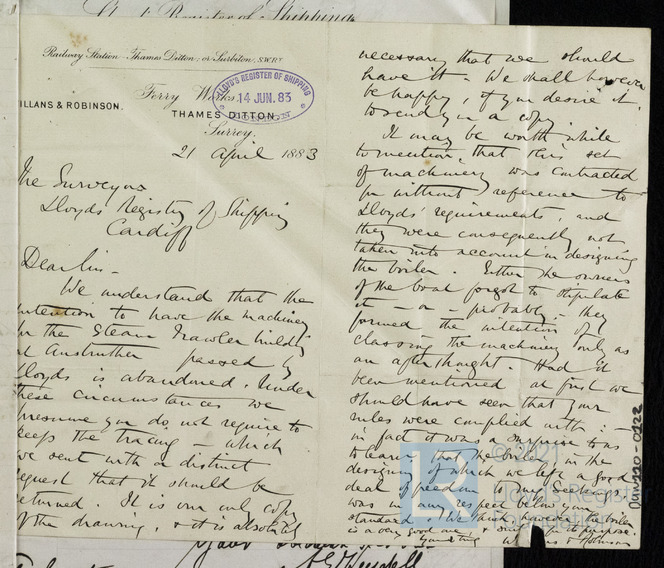 Railway Station - Thames Ditton; or Surbiton, S.W.Ry
ILLANS & ROBINSON.
Ferry Works,
THAMES DITTON,
Surrey.
LLOYD'S REGISTER OF SHIPPING
14 JUN. 83
21 April 1883
The Surveyors
Lloyds Registry of Shipping
Cardiff
Dear Sirs -
We understand that the
intention to have the machinery
for the Steam Trawler building
at Anstruther passed by
Lloyds is abandoned. Under
these circumstances we
presume you do not require to
keep the tracing which
we sent with a distinct
request that it should be
returned. It is our only copy
of the drawing, & it is absolutely
necessary that we should
have it. We shall however
be happy, if you desire it,
to send you a copy.
It may be worth while
to mention, that this set
of machinery was contracted
for without reference to
Lloyds' requirements, and
they were consequently not
taken into account in designing
the boiler. Either the owners
of the boat forgot to stipulate
it - or - probably - they
formed the intention of
classing the machinery only as
an afterthought. Had it
been mentioned at first we
should have seen that your
rules were complied with :-
in fact it was a surprise to us
to learn that the boiler in the
designing of which we left a good
deal of freedom to
was in any respect below your
standard. We the boiler
is a very good one purpose.
Yours truly
Willans & Robinson
© 2021
Lloyd's Register
Foundation